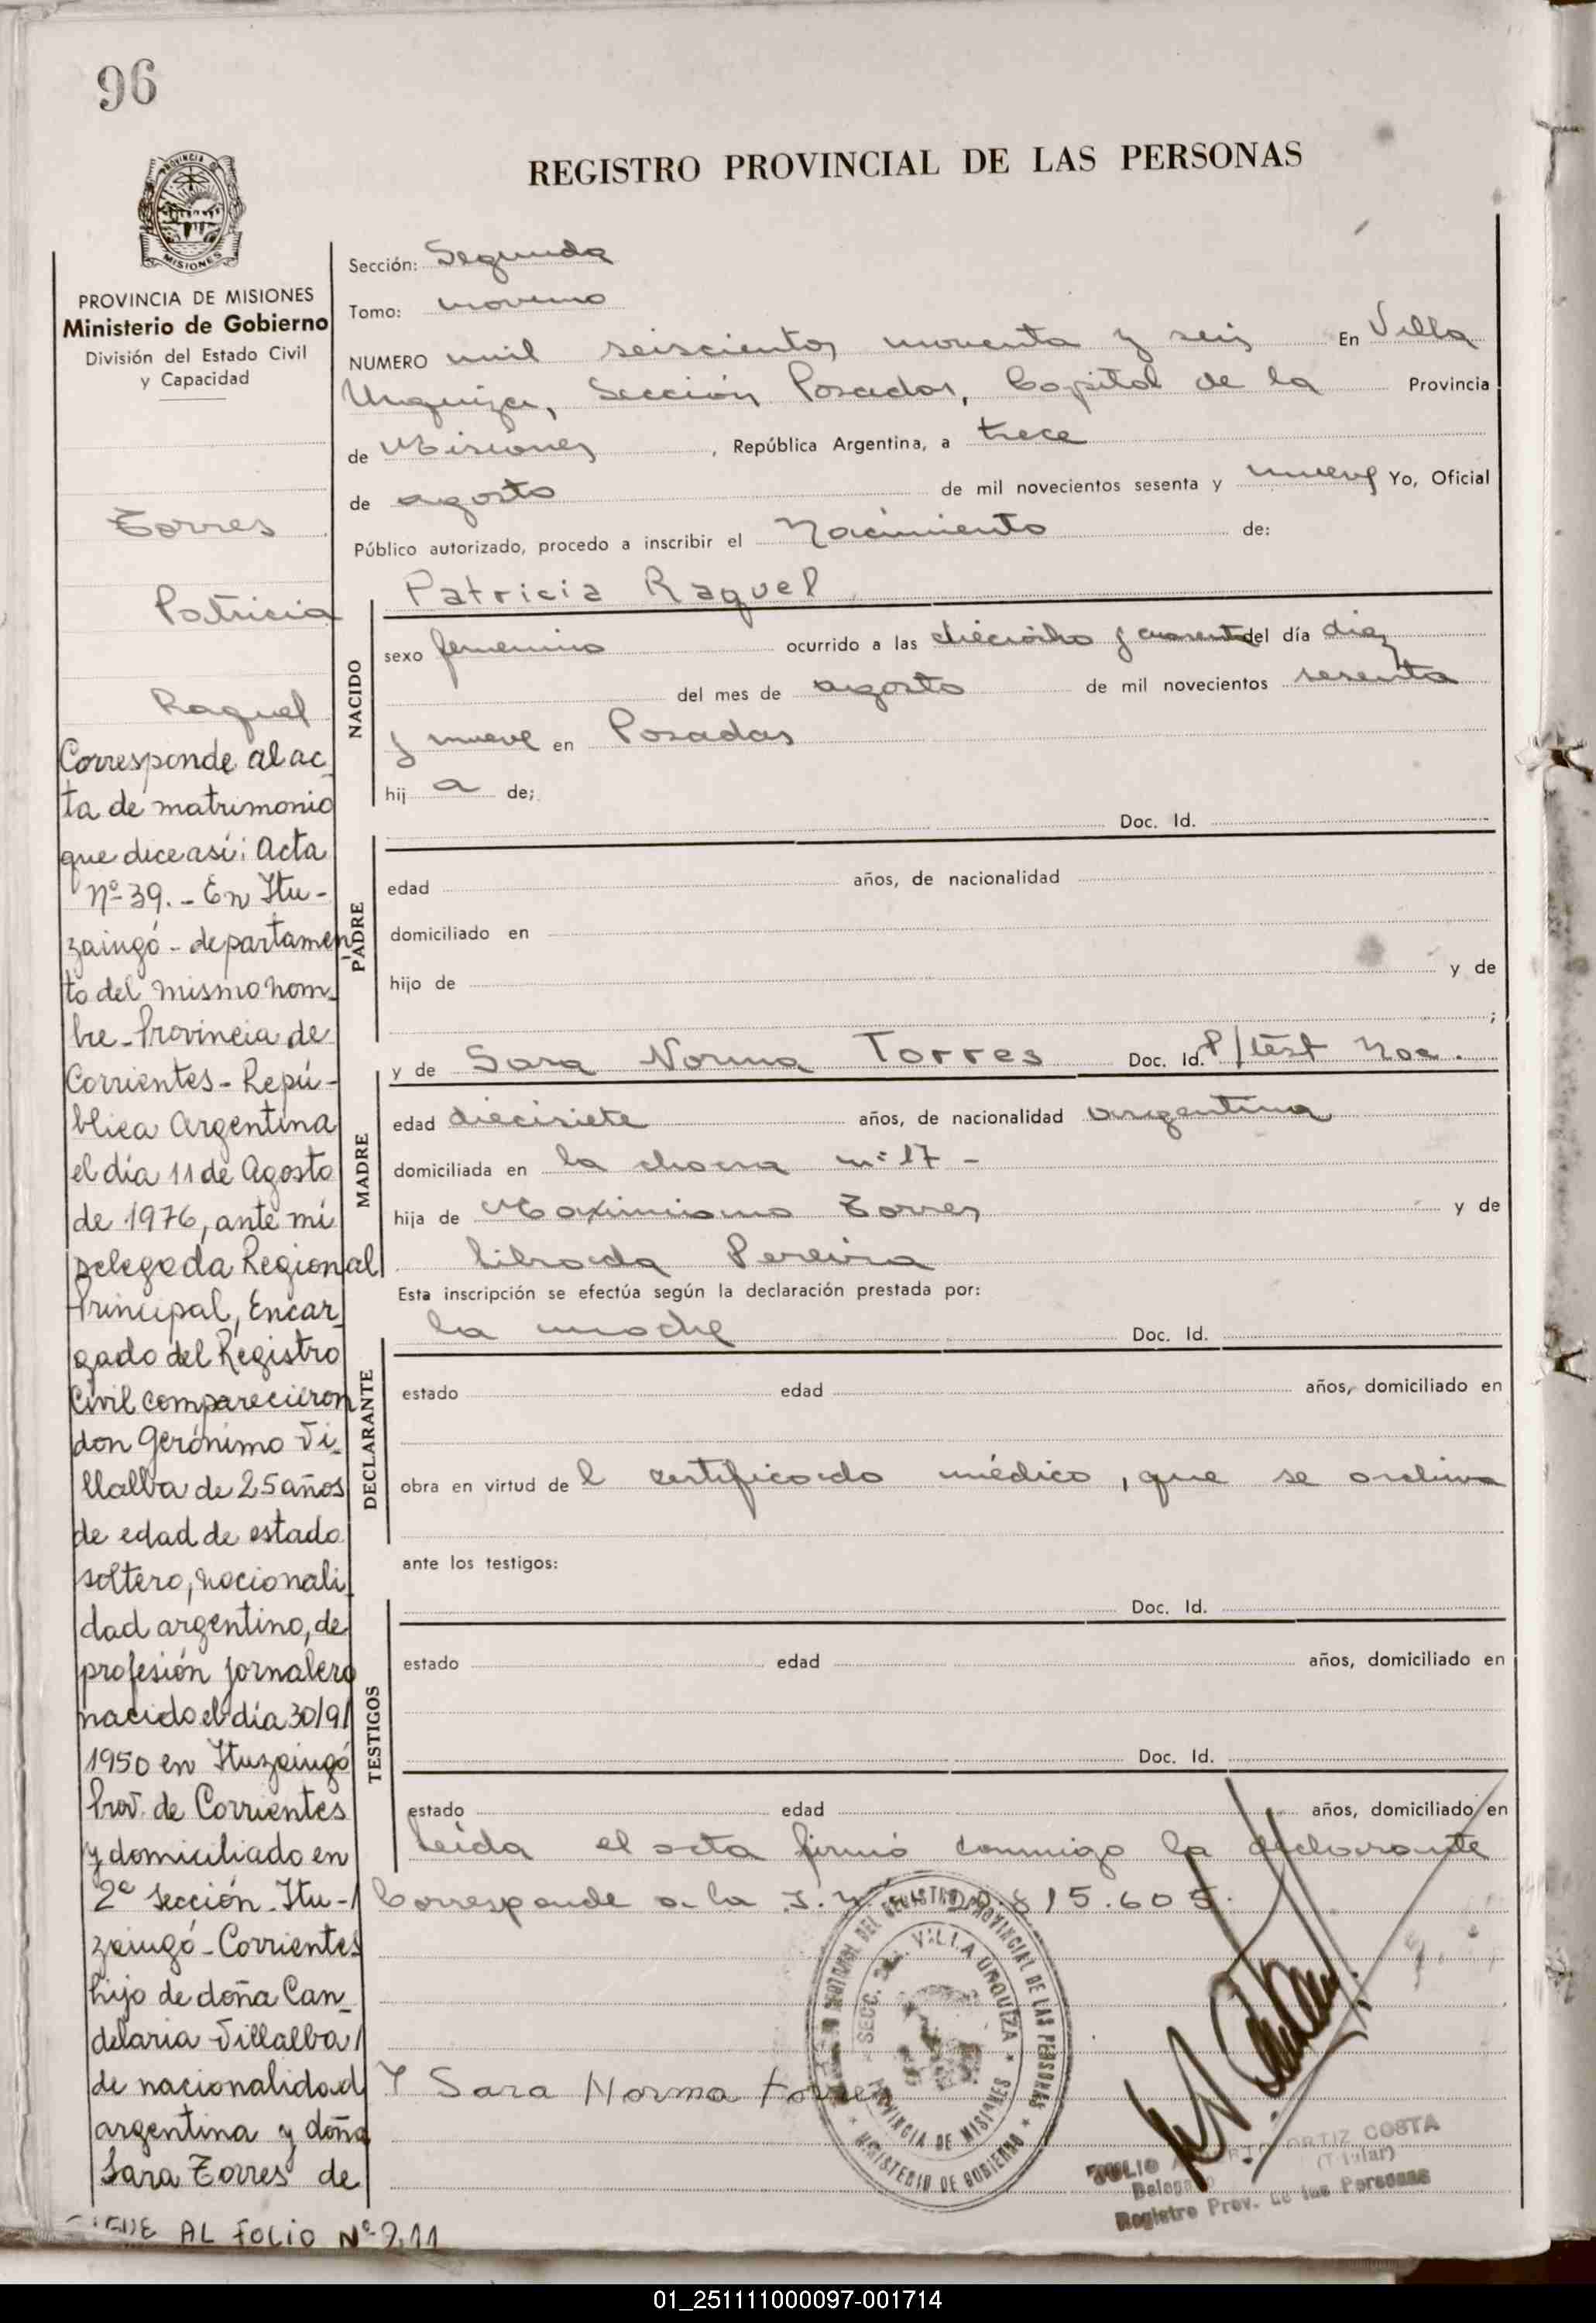 96
REGISTRO PROVINCIAL DE LAS PERSONAS
PROVINCIA DE MISIONES
PROVINCIA DE MISIONES
Ministerio de Gobierno
División del Estado Civil
y Capacidad
Torres
Patricia
Raquel
Corresponde al ac-
ta de matrimonio
que dice así: Acta
Nº 39. - En Itu-
zaingó - departamen
to del mismo nom-
bre - Provincia de
Corrientes - Repú-
blica Argentina
el día 11 de Agosto
de 1976, ante mí
Delegada Regional
Principal, Encar-
gado del Registro
Civil comparecieron
don Gerónimo Vi-
llalba de 25 años
de edad de estado
soltero, nacionali-
dad argentino, de
profesión jornalero
nacido el día 30/9/
1950 en Ituzaingó
Prov. de Corrientes
y domiciliado en
2ª Sección - Itu-
zaingó - Corrientes
hijo de doña Can-
delaria Villalba
de nacionalidad
argentina y doña
Sara Torres de
AL FOLIO Nº 211
Sección: Segunda
Tomo: noveno
NUMERO mil seiscientos noventa y seis En Villa
Urquiza, Sección Posadas, Capital de la Provincia
de Misiones, República Argentina, a trece
de agosto de mil novecientos sesenta y nueve Yo, Oficial
Público autorizado, procedo a inscribir el Nacimiento de:
Patricia Raquel
NACIDO
sexo femenino ocurrido a las dieciocho y cuarenta del día diez
del mes de agosto de mil novecientos sesenta
y nueve en Posadas
hij a de;
Doc. Id.
PADRE
edad años, de nacionalidad
domiciliado en
hijo de y de
;
MADRE
y de Sara Norma Torres Doc. Id. P/test Nac.
edad diecisiete años, de nacionalidad argentina
domiciliada en la chacra nº 17 -
hija de Maximiano Torres y de
Librada Pereira
Esta inscripción se efectúa según la declaración prestada por:
DECLARANTE
la madre Doc. Id.
estado edad años, domiciliado en
obra en virtud de l certificado médico, que se archiva
ante los testigos:
TESTIGOS
Doc. Id.
estado edad años, domiciliado en
Doc. Id.
estado edad años, domiciliado en
Leída el acta firmó conmigo la declarante
Corresponde a la 15.605.
SECC. VILLA URQUIZA
REGISTRO PROVINCIAL DE LAS PERSONAS
PROVINCIA DE MISIONES
MINISTERIO DE GOBIERNO
Sara Norma Torres
JULIO ORTIZ COSTA
(Titular)
Delegado
Registro Prov. de las Personas
01_251111000097-001714